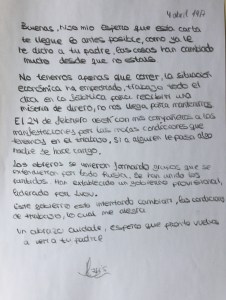 4 abril 1917
Buenas, hijo mio espero que esta carta
te llegue lo antes posible, como ya le
he dicho a tu padre, las cosas han cambiado
mucho desde que no estais
No tenemos apenas que comer, la situación
económica ha empeorado, trabajo todo el
dia en la fabrica para recibir una
miseria de dinero, no nos llega para mantenernos
El 24 de febrero asistí con mis compañeros a las
manifestaciones por las malas condiciones que
tenemos en el trabajo, si a alguien le pasa algo
nadie se hace cargo.
Los obreros se unieron formando grupos que se
extendieron por toda Rusia, se han unido los
partidos. Han establecido un gobierno provisional,
liderado por Lvov.
Este gobierno está intentando cambiar, las condiciones
de trabajo, lo cual me alegra
Un abrazo cuidate, espero que pronto vuelvas
a ver a tu padre